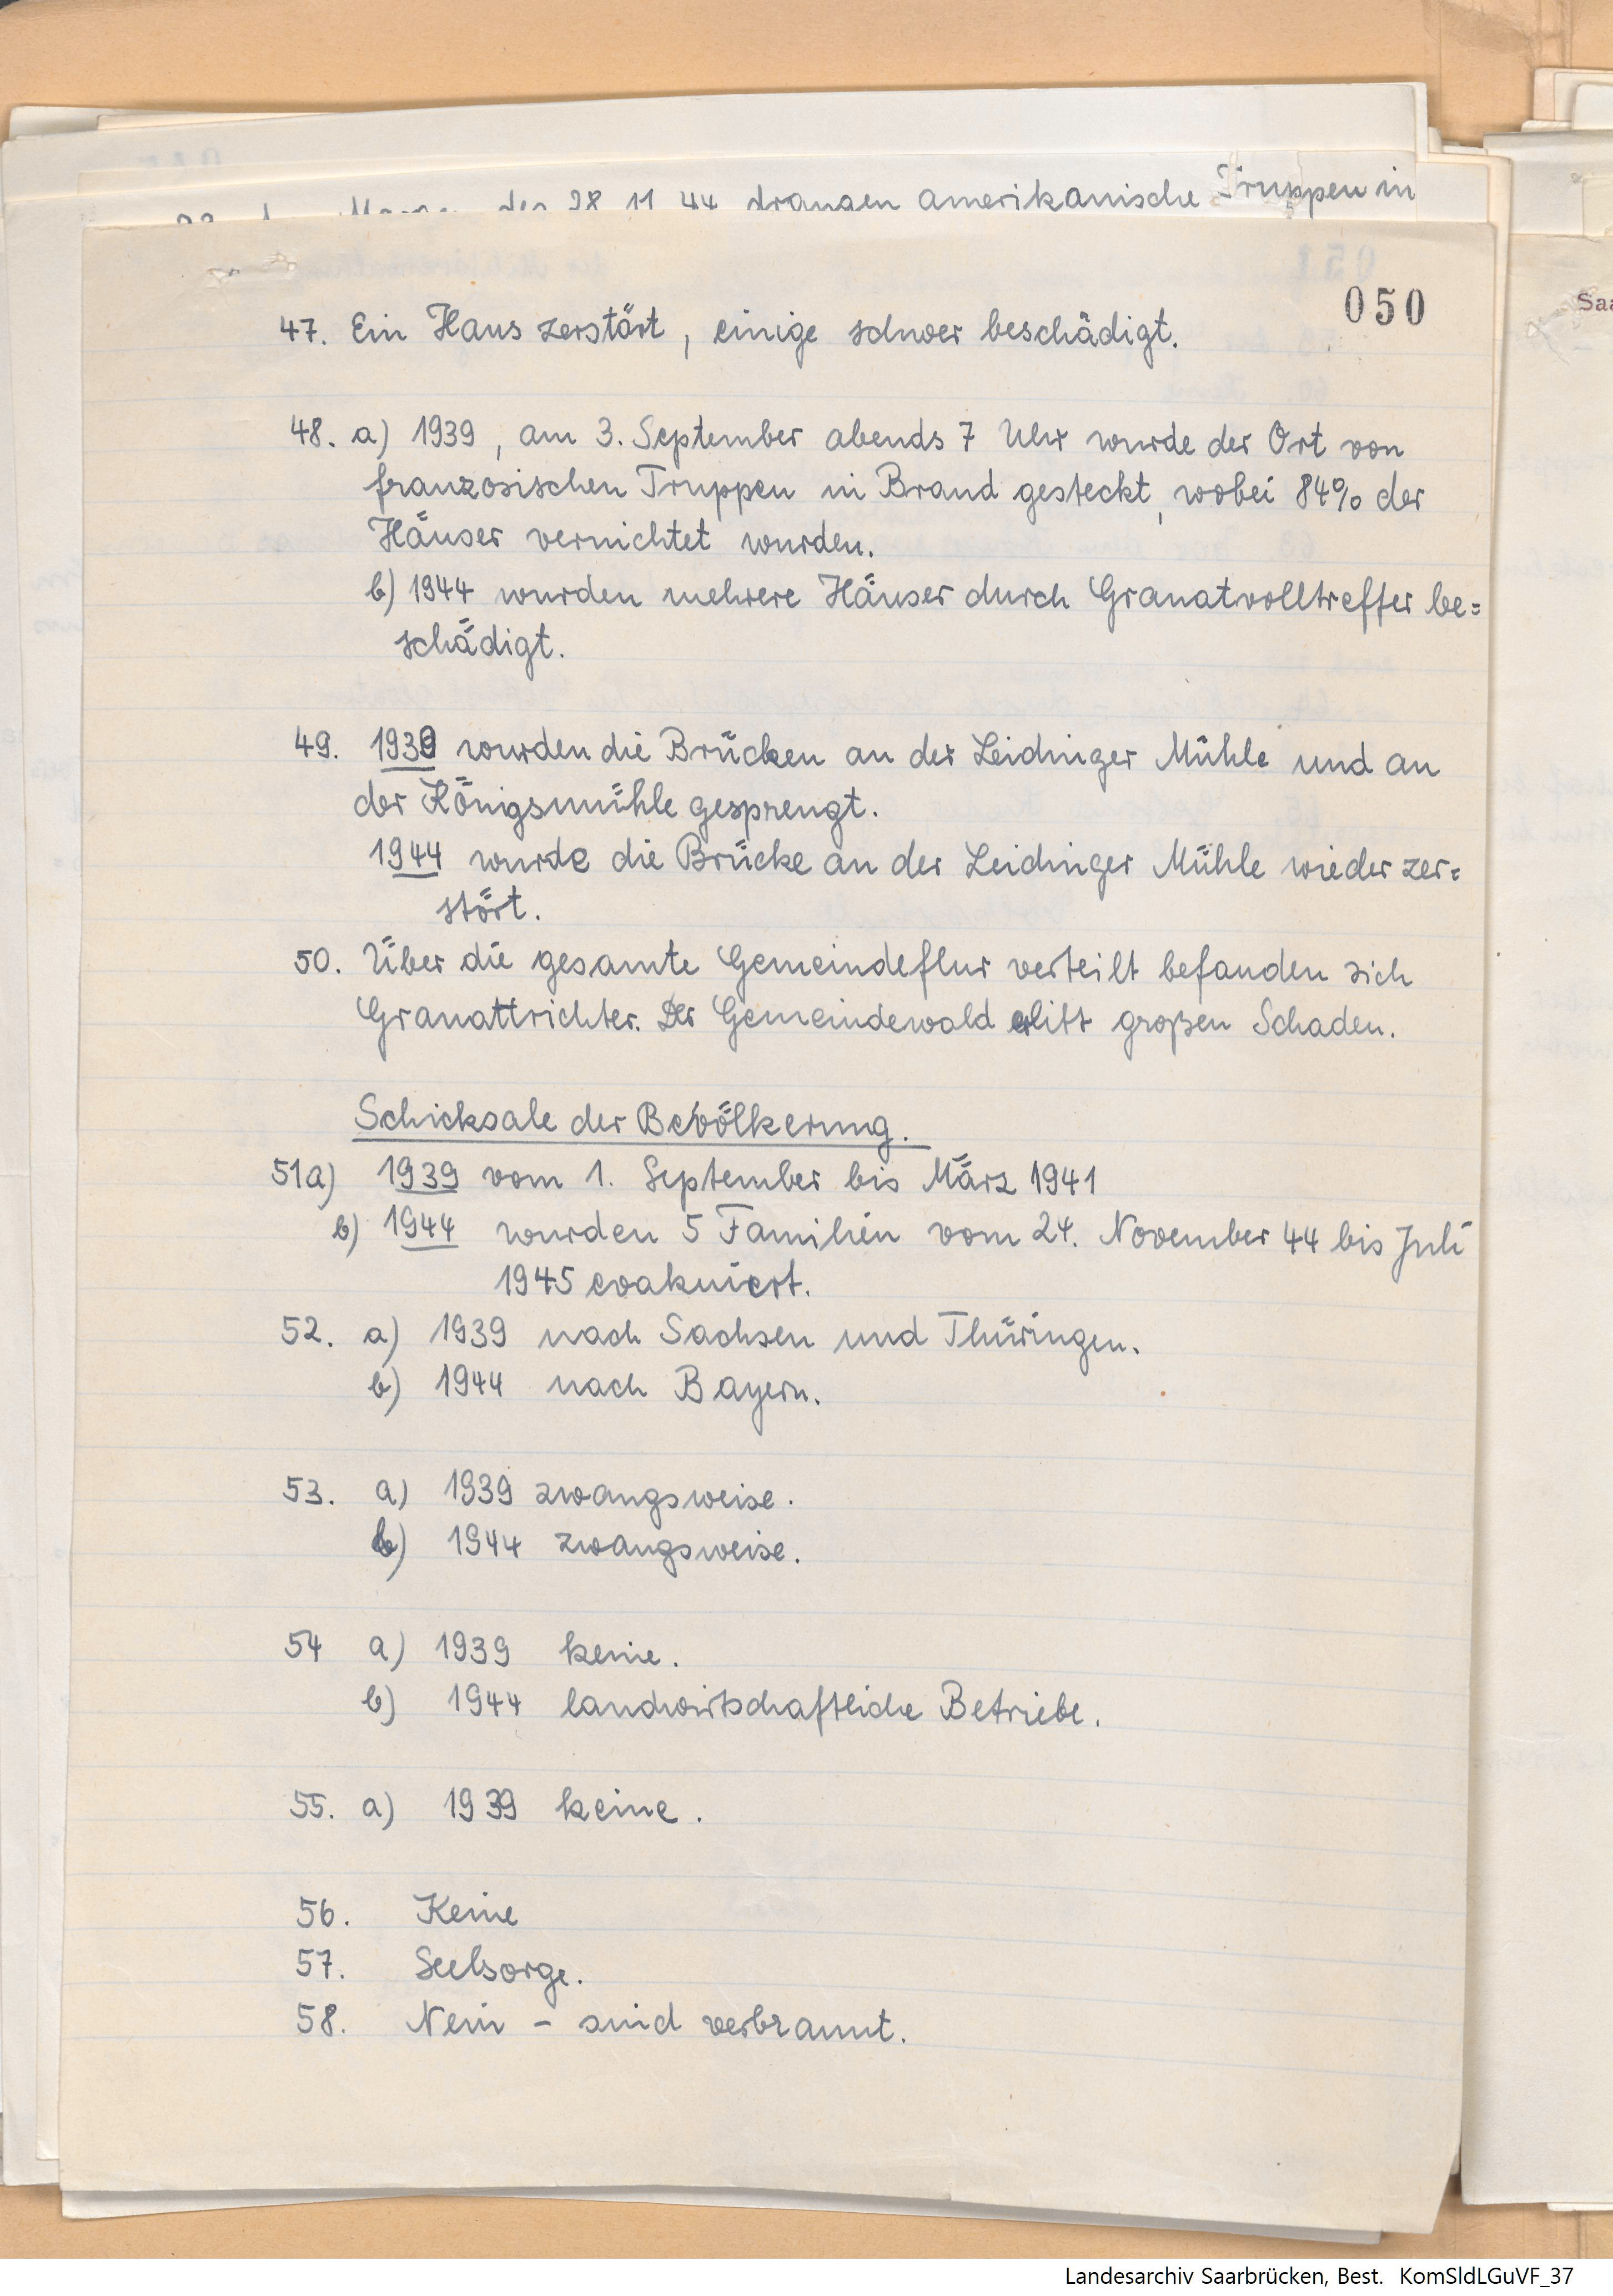 den 28 11 44 drangen amerikanische Truppen in
050
Saa
47. Ein Haus zerstört, einige schwer beschädigt.
48. a) 1939, am 3. September abends 7 Uhr wurde der Ort von
französischen Truppen in Brand gesteckt, wobei 84% der
Häuser vernichtet wurden.
b) 1944 wurden mehrere Häuser durch Granatvolltreffer be=
schädigt.
49. 1939 wurden die Brücken an der Leidinger Mühle und an
der Königsmühle gesprengt.
1944 wurde die Brücke an der Leidinger Mühle wieder zer=
stört.
50. Über die gesamte Gemeindeflur verteilt befanden sich
Granattrichter. Der Gemeindewald erlitt großen Schaden.
Schicksale der Bevölkerung.
51a) 1939 vom 1. September bis März 1941
b) 1944 wurden 5 Familien vom 24. November 44 bis Juli
1945 evakuiert.
52. a) 1939 nach Sachsen und Thüringen.
b) 1944 nach Bayern.
53. a) 1939 zwangsweise.
b) 1944 zwangsweise.
54 a) 1939 keine.
b) 1944 landwirtschaftliche Betriebe.
55. a) 1939 keine.
56. Keine
57. Seelsorge.
58. Nein - sind verbrannt.
Landesarchiv Saarbrücken, Best. KomSldLGuVF_37